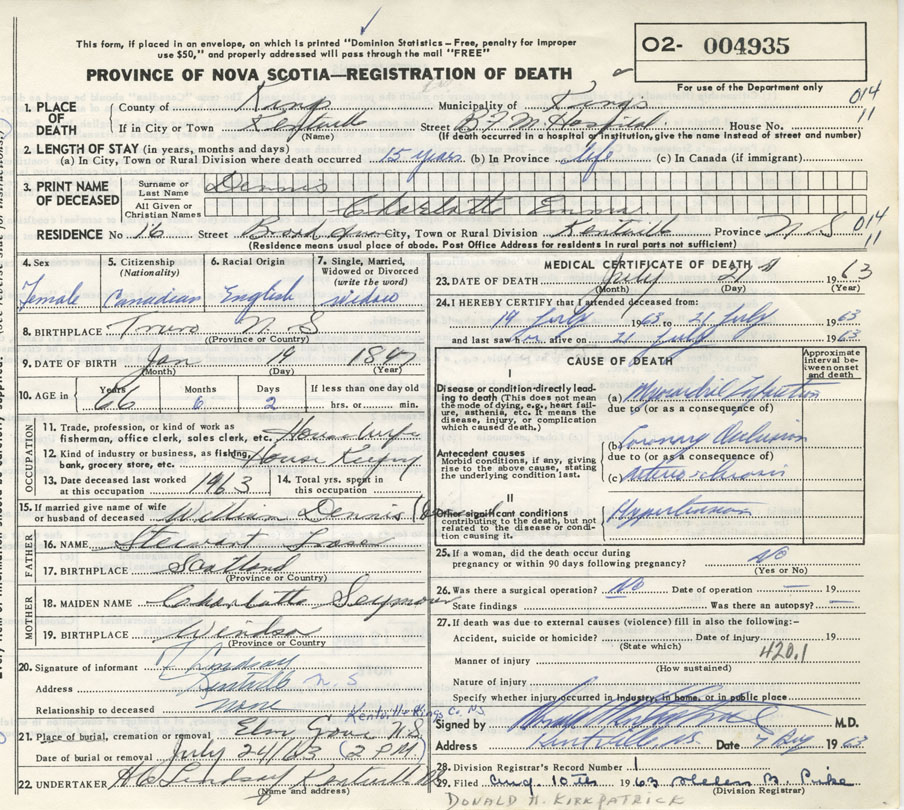 This form, if placed in an envelope, on which is printed "Dominion Statistics – Free, penalty for improper
use $50," and properly addressed will pass through the mail "FREE"
O2- 004935
PROVINCE OF NOVA SCOTIA—REGISTRATION OF DEATH
For use of the Department only
1. PLACE OF DEATH County of Kings Municipality of Kings 014
If in City or Town Kentville Street B.F.M. Hospital House No. 11
(Name) (If death occurred in a hospital or institution, give the name instead of street and number)
2. LENGTH OF STAY (in years, months and days)
(a) In City, Town or Rural Division where death occurred 15 years (b) In Province life (c) In Canada (if immigrant)
3. PRINT NAME OF DECEASED Surname or Last Name Dennis
All Given or Christian Names Charlotte Emma
RESIDENCE No 16 Street Broad City, Town or Rural Division Kentville Province N.S 014
(Residence means usual place of abode. Post Office Address for residents in rural parts not sufficient) 11
4. Sex Female
5. Citizenship (Nationality) Canadian
6. Racial Origin English
7. Single, Married, Widowed or Divorced (write the word) widow
8. BIRTHPLACE Truro N. S
(Province or Country)
9. DATE OF BIRTH Jan 19 1897
(Month) (Day) (Year)
10. AGE in Years 66 Months 6 Days 2 If less than one day old hrs. or min.
OCCUPATION
11. Trade, profession, or kind of work as fisherman, office clerk, sales clerk, etc. Housewife
12. Kind of industry or business, as fishing, bank, grocery store, etc. House Keeping
13. Date deceased last worked at this occupation 1963
14. Total yrs. spent in this occupation
15. If married give name of wife or husband of deceased William Dennis
FATHER
16. NAME Stewart Fraser
17. BIRTHPLACE Scotland
(Province or Country)
MOTHER
18. MAIDEN NAME Charlotte Seymour
19. BIRTHPLACE Windsor
(Province or Country)
20. Signature of informant Lindsay
Address Kentville N. S
Relationship to deceased none
Kentville Kings Co NS
21. Place of burial, cremation or removal Elm Grove N.S
Date of burial or removal July 24/63 (2 PM)
22. UNDERTAKER H C Lindsay Kentville NS
(Name and address)
MEDICAL CERTIFICATE OF DEATH
23. DATE OF DEATH July 21st 1963
(Month) (Day) (Year)
24. I HEREBY CERTIFY that I attended deceased from:
19 July 1963 to 21 July 1963
and last saw her alive on 21 July 1963
CAUSE OF DEATH
Approximate interval between onset and death
I
Disease or condition directly leading to death (This does not mean the mode of dying, e.g., heart failure, asthenia, etc. It means the disease, injury, or complication which caused death.)
(a) Myocardial Infarction
due to (or as a consequence of)
Antecedent causes
Morbid conditions, if any, giving rise to the above cause, stating the underlying condition last.
(b) Coronary Occlusion
due to (or as a consequence of)
(c) Arteriosclerosis
II
Other significant conditions
contributing to the death, but not related to the disease or condition causing it.
Hypertension
25. If a woman, did the death occur during
pregnancy or within 90 days following pregnancy? No
(Yes or No)
26. Was there a surgical operation? No Date of operation — 19
State findings Was there an autopsy? —
27. If death was due to external causes (violence) fill in also the following:-
Accident, suicide or homicide? Date of injury 19
(State which)
420.1
Manner of injury
(How sustained)
Nature of injury
Specify whether injury occurred in industry, in home, or in public place
Signed by M.D.
Address Kentville, N.S. Date 7 Aug 1963
28. Division Registrar's Record Number 1
29. Filed Aug. 10th 1963 Helen B. Pike
(Division Registrar)
DONALD H. KIRKPATRICK